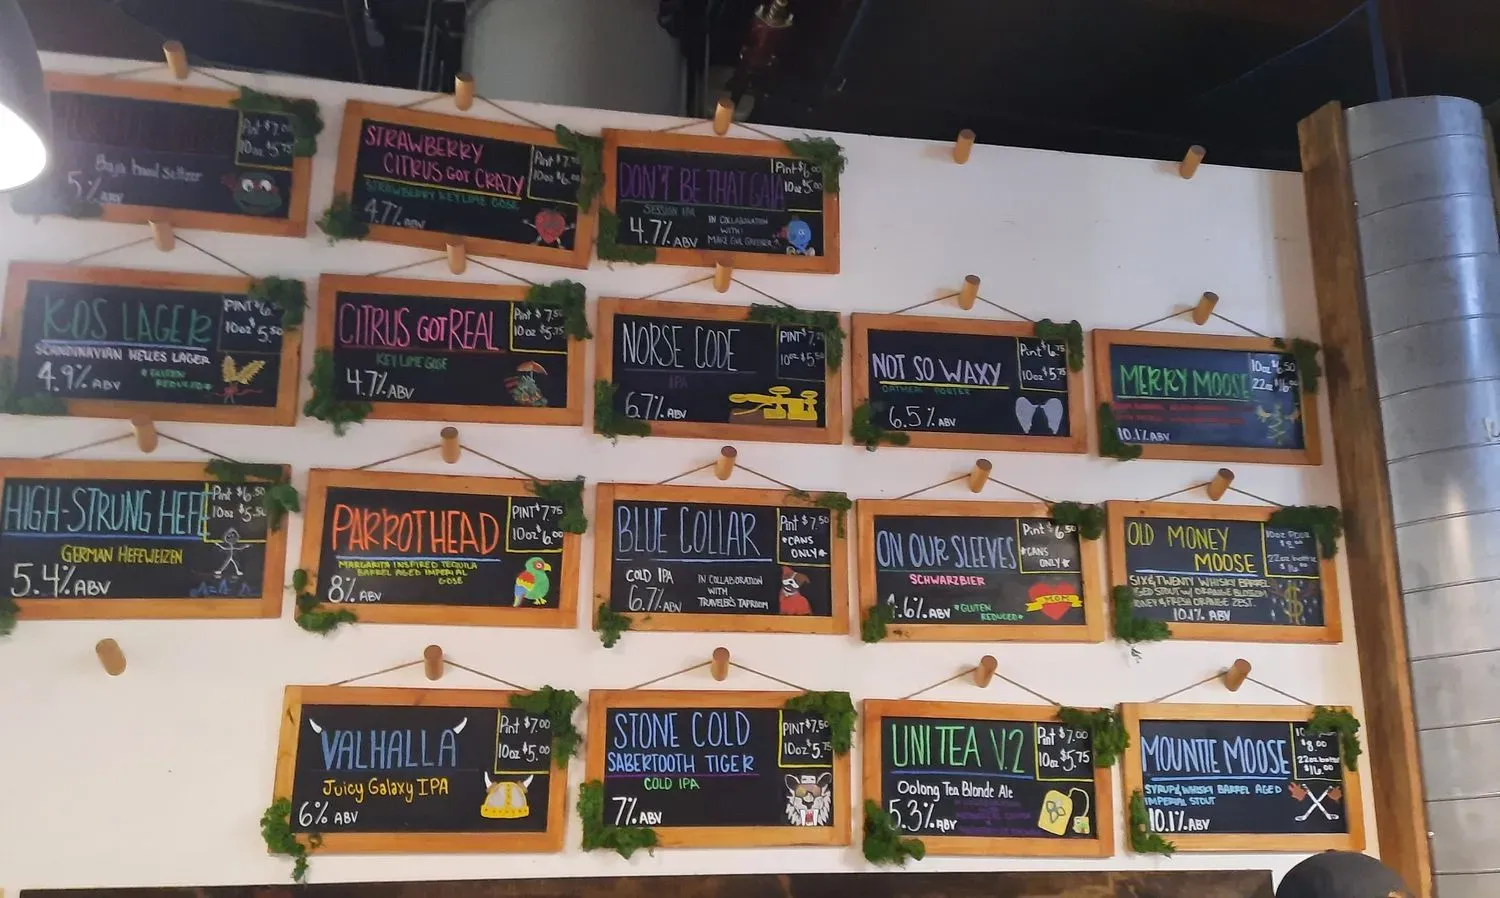 Pint $7.00
10oz $5.75
hard Seltzer
5% ABV
STRAWBERRY
CITRUS GOT CRAZY
STRAWBERRY KEY LIME GOSE
4.7% ABV
Pint $7.
10oz $6.
DON'T BE THAT GAIA
SESSION IPA
4.7% ABV
IN COLLABORATION
WITH:
Pint $6.00
10oz $5.00
KOS LAGER
SCANDINAVIAN HELLES LAGER
4.9% ABV
*GLUTEN
REDUCED*
PINT $6.
10oz $5.50
CITRUS GOT REAL
KEY LIME GOSE
4.7% ABV
Pint $7.50
10oz $5.75
NORSE CODE
IPA
6.7% ABV
PINT $7.25
10oz $5.50
NOT SO WAXY
OATMEAL PORTER
6.5% ABV
Pint $6.75
10oz $5.75
MERRY MOOSE
10.1% ABV
10oz $6.50
22oz $16.00
HIGH-STRUNG HEFE
GERMAN HEFEWEIZEN
5.4% ABV
Pint $6.50
10oz $5.50
PARROTHEAD
MARGARITA INSPIRED TEQUILA
BARREL AGED IMPERIAL
GOSE
8% ABV
PINT $7.75
10oz $6.00
BLUE COLLAR
COLD IPA
6.7% ABV
IN COLLABORATION
WITH
TRAVELER'S TAPROOM
Pint $7.50
*CANS
ONLY*
ON OUR SLEEVES
SCHWARZBIER
4.6% ABV
*GLUTEN
REDUCED*
Pint $6.50
*CANS
ONLY*
MOM
OLD MONEY
MOOSE
SIX & TWENTY WHISKY BARREL
AGED STOUT W/ ORANGE BLOSSOM
HONEY & FRESH ORANGE ZEST.
10.1% ABV
10oz POUR
$8.00
22oz bottle
$16.00
VALHALLA
Juicy Galaxy IPA
6% ABV
Pint $7.00
10oz $5.00
STONE COLD
SABERTOOTH TIGER
COLD IPA
7% ABV
PINT $7.50
10oz $5.75
UNI TEA V.2
Oolong Tea Blonde Ale
5.3% ABV
Pint $7.00
10oz $5.75
MOUNTIE MOOSE
SYRUP & WHISKY BARREL AGED
IMPERIAL STOUT
10.1% ABV
$8.00
22oz bottle
$16.00